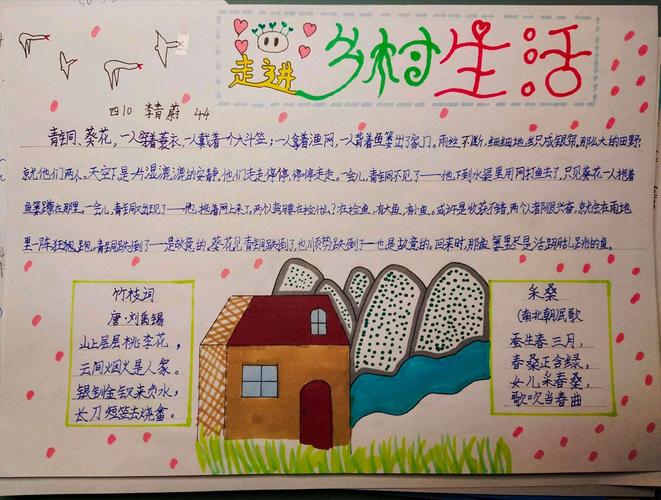 走进乡村生活
四10 李青蔚 44
青铜、葵花,一人穿着蓑衣,一人戴着一个大斗笠;一人拿着渔网,一人背着鱼篓出了家门。雨丝不断,细细地丝只成银帘,那么大的田野,
就他们两个人。天空下是一片湿漉漉的安静,他们走走停停,停停走走。一会儿,青铜不见了——他下到水渠里用网打鱼去了,只见葵花一人抱着
鱼篓蹲在那里。一会儿,青铜又出现了——他拖着网上来了,两个人弯腰在捡什么?在捡鱼,有大鱼,有小鱼。或许是收获不错,两个人都很兴奋,就会在雨地
里一阵狂跑。青铜跌倒了——是故意的。葵花见青铜跌倒了,也顺势跌倒了——也是故意的。回来时,那鱼篓里尽是活蹦乱跳的鱼。
竹枝词
唐·刘禹锡
山上层层桃李花,
云间烟火是人家。
银钏金钗来负水,
长刀短笠去烧畲。
采桑
(南北朝)民歌
蚕生春三月,
春桑正含绿,
女儿采春桑,
歌吹当春曲